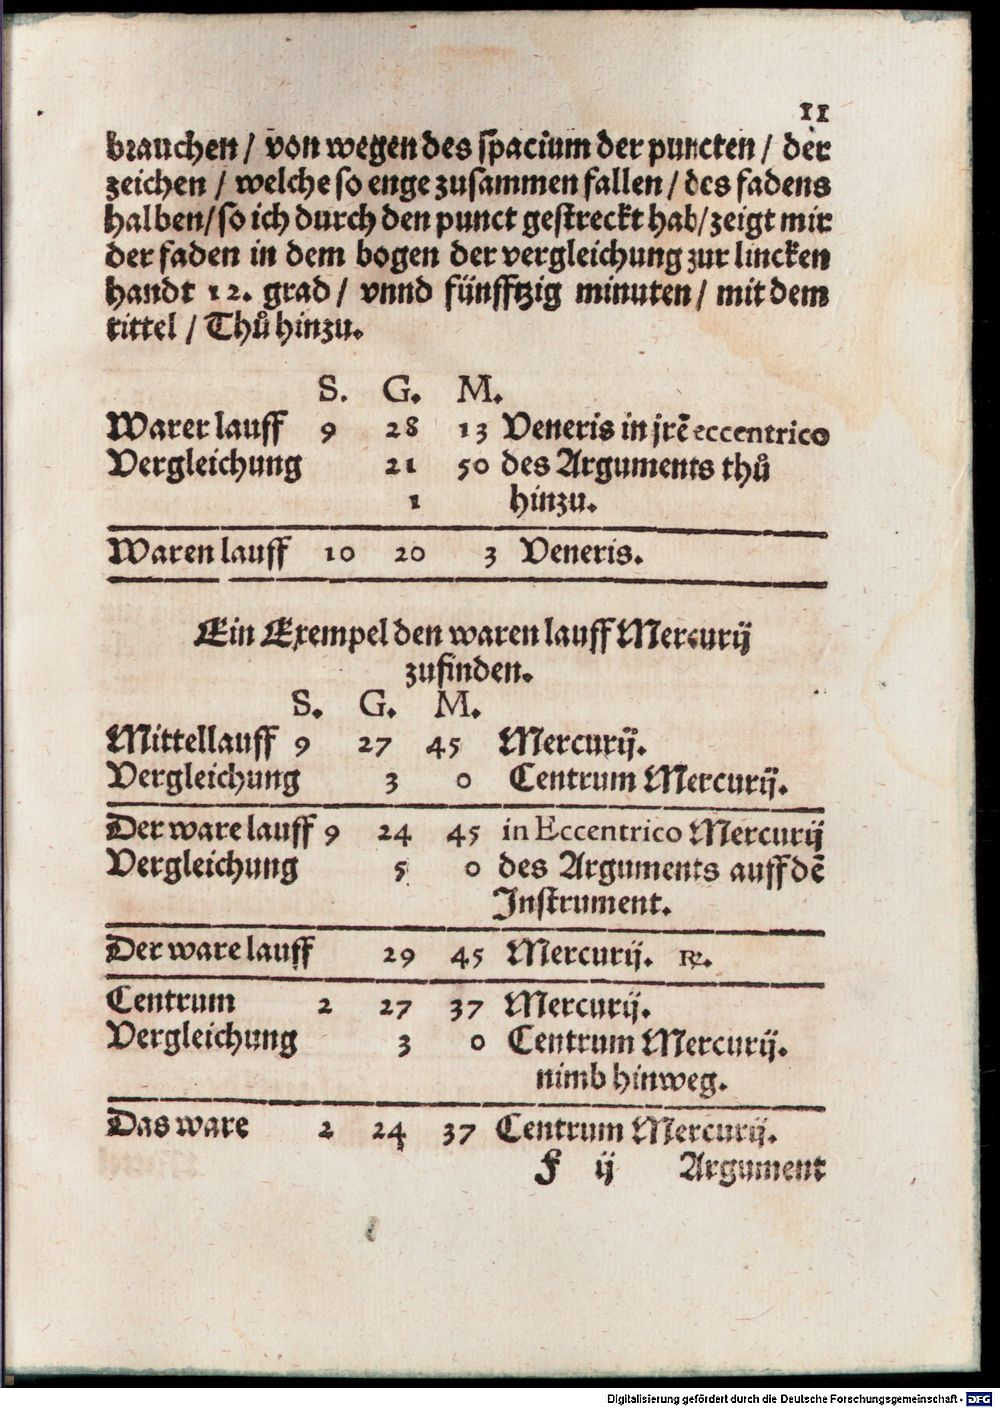 11
brauchen / von wegen des spacium der puncten / der
zeichen / welche so enge zusammen fallen / des fadens
halben / so ich durch den punct gestreckt hab / zeigt mir
der faden in dem bogen der vergleichung zur lincken
handt 12. grad / vnnd fünfftzig minuten / mit dem
tittel / Thů hinzu.
S. G. M.
Warer lauff 9 28 13 Veneris in jrē eccentrico
Vergleichung 21 50 des Arguments thů
1 hinzu.
Waren lauff 10 20 3 Veneris.
Ein Exempel den waren lauff Mercurij
zufinden.
S. G. M.
Mittellauff 9 27 45 Mercurij.
Vergleichung 3 0 Centrum Mercurij.
Der ware lauff 9 24 45 in Eccentrico Mercurij
Vergleichung 5 0 des Arguments auff dē
Instrument.
Der ware lauff 29 45 Mercurij. ℞.
Centrum 2 27 37 Mercurij.
Vergleichung 3 0 Centrum Mercurij.
nimb hinweg.
Das ware 2 24 37 Centrum Mercurij.
F ij Argument
Digitalisierung gefördert durch die Deutsche Forschungsgemeinschaft - DFG